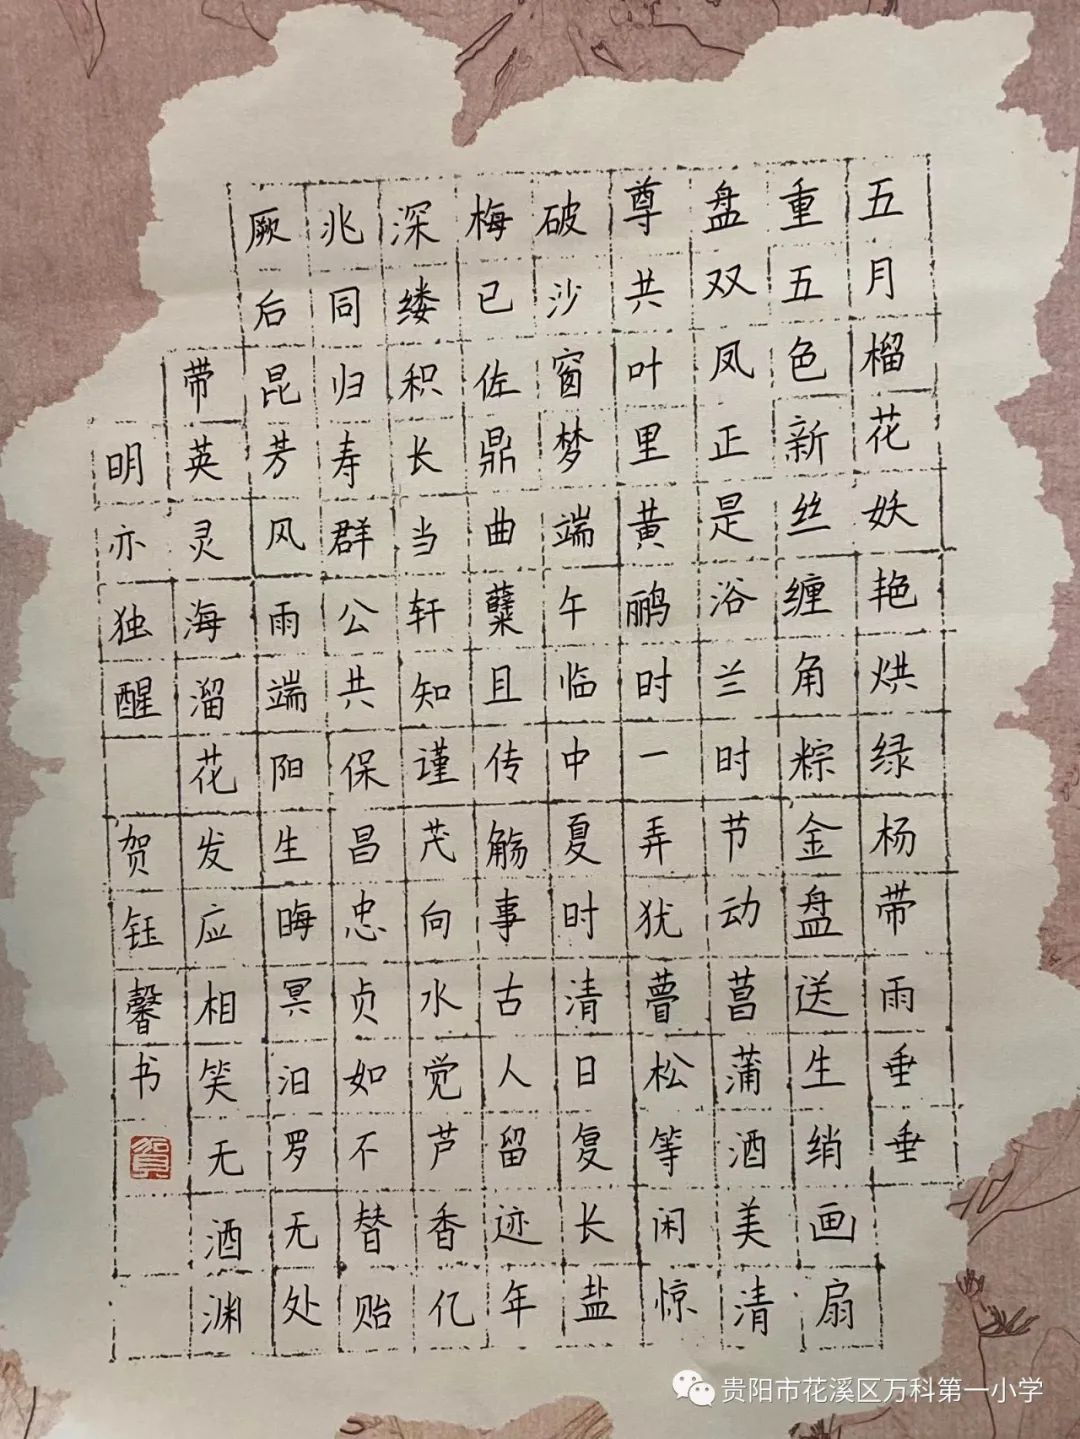 五月榴花妖艳烘绿杨带雨垂垂
重五色新丝缠角粽金盘送生绡画扇
盘双凤正是浴兰时节动菖蒲酒美清
尊共叶里黄鹂时一弄犹瞢松等闲惊
破沙窗梦端午临中夏时清日复长盐
梅已佐鼎曲糵且传觞事古人留迹年
深缕积长当轩知谨茂向水觉芦香亿
兆同归寿群公共保昌忠贞如不替贻
厥后昆芳风雨端阳生晦冥汨罗无处
带英灵海溜花发应相笑无酒渊
明亦独醒
贺钰馨书
贵阳市花溪区万科第一小学